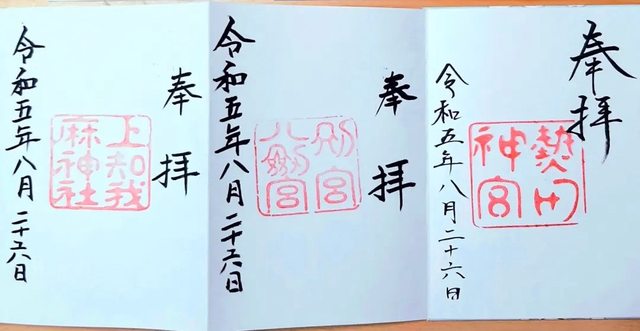 奉拝
熱田
神宮
令和五年八月二十六日
奉拝
別宮
八剣宮
令和五年八月二十六日
奉拝
上知我
麻神社
令和五年八月二十六日